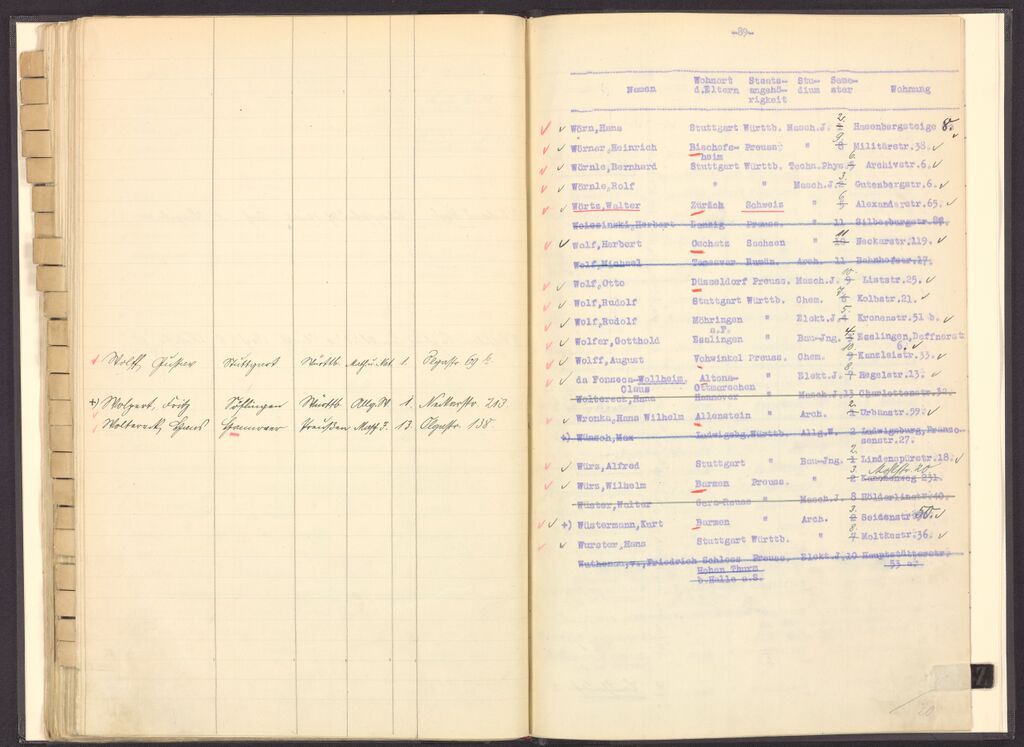 Wolff, Gustav Stuttgart Württb. Math.u.Nat. 1. Olgastr. 69 b.
+) Wolpert, Fritz Württb Allg.W 1. Neckarstr. 213
Woltereck, Hans Hannover Preußen Masch.J. 13. Olgastr. 138.
-89-
Namen Wohnort d.Eltern Staats-angehö-rigkeit Stu-dium Seme-ster Wohnung
Wörn,Hans Stuttgart Württb. Masch.J. 2. Hasenbergsteige 8.
Wörner,Heinrich Bischofs-heim Preuss. " 9. 8 Militärstr.38.
Wörnle,Bernhard Stuttgart Württb. Techn.Phys. 6. Archivstr.6.
Wörnle,Rolf " " Masch.J. 3. Gutenbergstr.6.
Wörtz,Walter Zürich Schweiz " 6 Alexanderstr.65.
Woissinski,Herbert Danzig Preuss. " 11 Silberburgstr.
Wolf,Herbert Oschatz Sachsen " 11 10 Neckarstr.119.
Wolf,Michael Temesvar Rumän. Arch. 11 Bahnhofstr.17.
Wolf,Otto Düsseldorf Preuss. Masch.J. 10. 9 Liststr.25.
Wolf,Rudolf Stuttgart Württb. Chem. 7. 6 Kolbstr.21.
Wolf,Rudolf Möhringen a.F. " Elekt.J. 5. 4 Kronenstr.51 b.
Wolfer,Gotthold Esslingen " Bau-Jng. Esslingen,Deffnerstr 6.
Wolff,August Vohwinkel Preuss. Chem. 10. 9 Kanzleistr.33.
da Fonseca-Wollheim, Claus Altona-Ottmarschen " Elekt.J. 8. 7 Hegelstr.13.
Woltereck,Hans Hannover " Masch.J.13 Charlottenstr.
Wronka,Hans Wilhelm Allenstein " Arch. 2. Urbanstr.59.
+) Wünsch,Max Ludwigsbg.Württb. Allg.W. 2 Ludwigsburg,Franzo-senstr.27.
Würz,Alfred Stuttgart " Bau-Jng. 2. 1 Lindenspürstr.18.
Würz,Wilhelm Barmen Preuss. " 3. 2 Kanonenweg 231. 20
Wüster,Walter Gera-Reuss " Masch.J. 8 Hölderlinstr.40.
+) Wüstermann,Kurt Barmen " Arch. 3. 2 Seidenstr. 50.
Wurster,Hans Stuttgart Württb. " 8. 7 Moltkestr.36.
Wuthenau,v.,Friedrich Schloss Hohen Thurm b.Halle a.S. Preuss. Elekt.J.10 Hauptstätterstr. 53 a.
Z
20